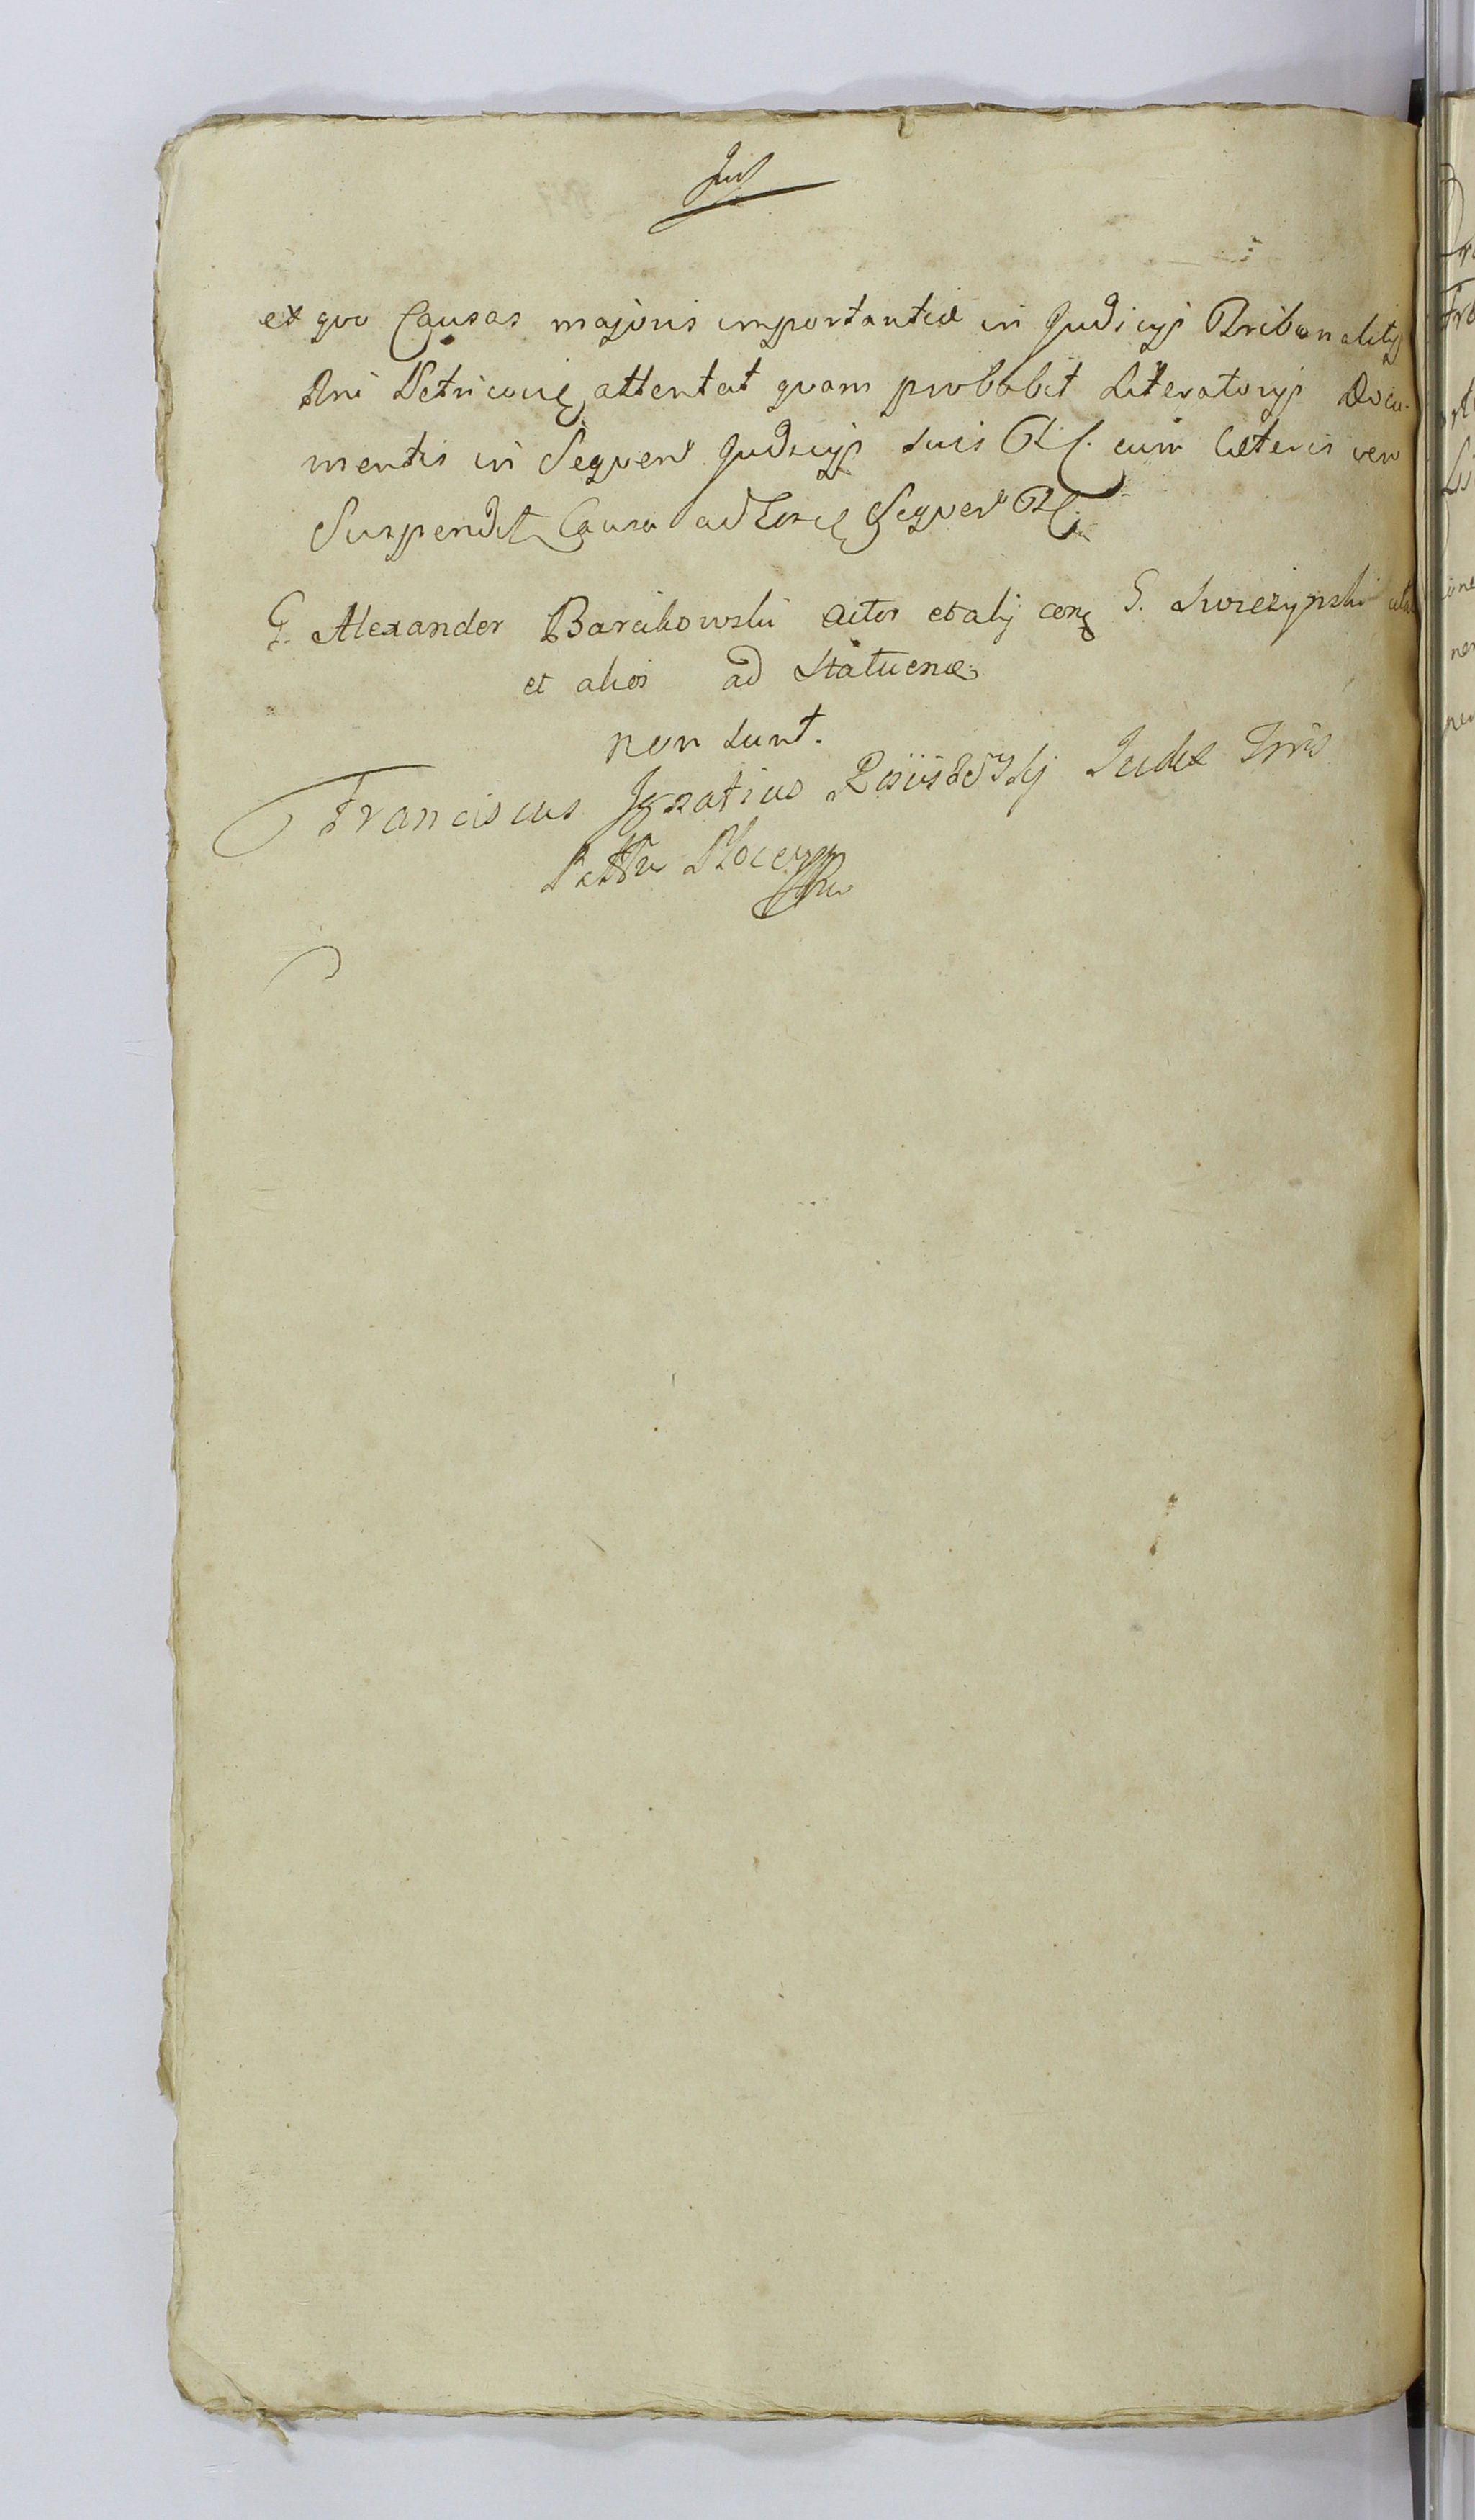 et quo Causas majoris importantiæ in Judicijs Tribunalitijs
Rni Petricovię attentat quam probabit Literatorijs Docu-
mentis in Sequen Judicijs suis RC. cum cæteris vero
Suspendit Causa ad Sequen RC.
G. Alexander Barcikowski actor et alij con G. Swiezynski
et alios ad statuenda
non sunt.
Franciscus Ignatius Judex Trris
Plocen